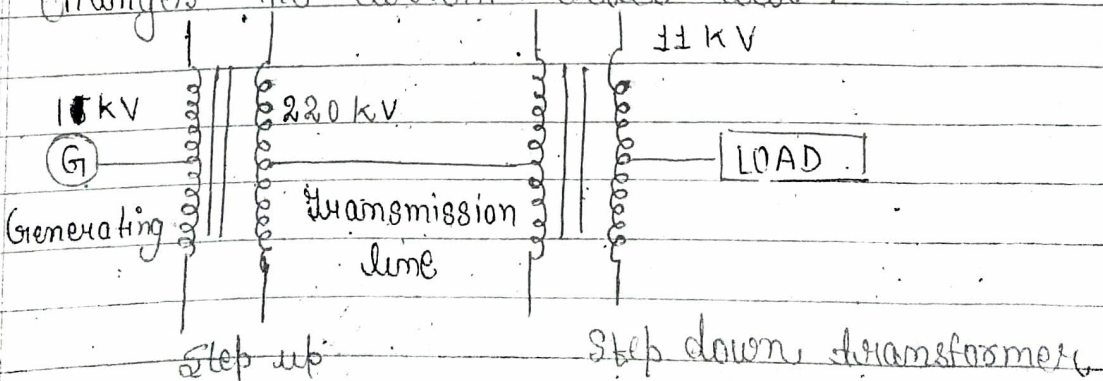 11 KV
KV
220 KV
G
LOAD
Generating
Transmission
line
Step up
Step down transformer